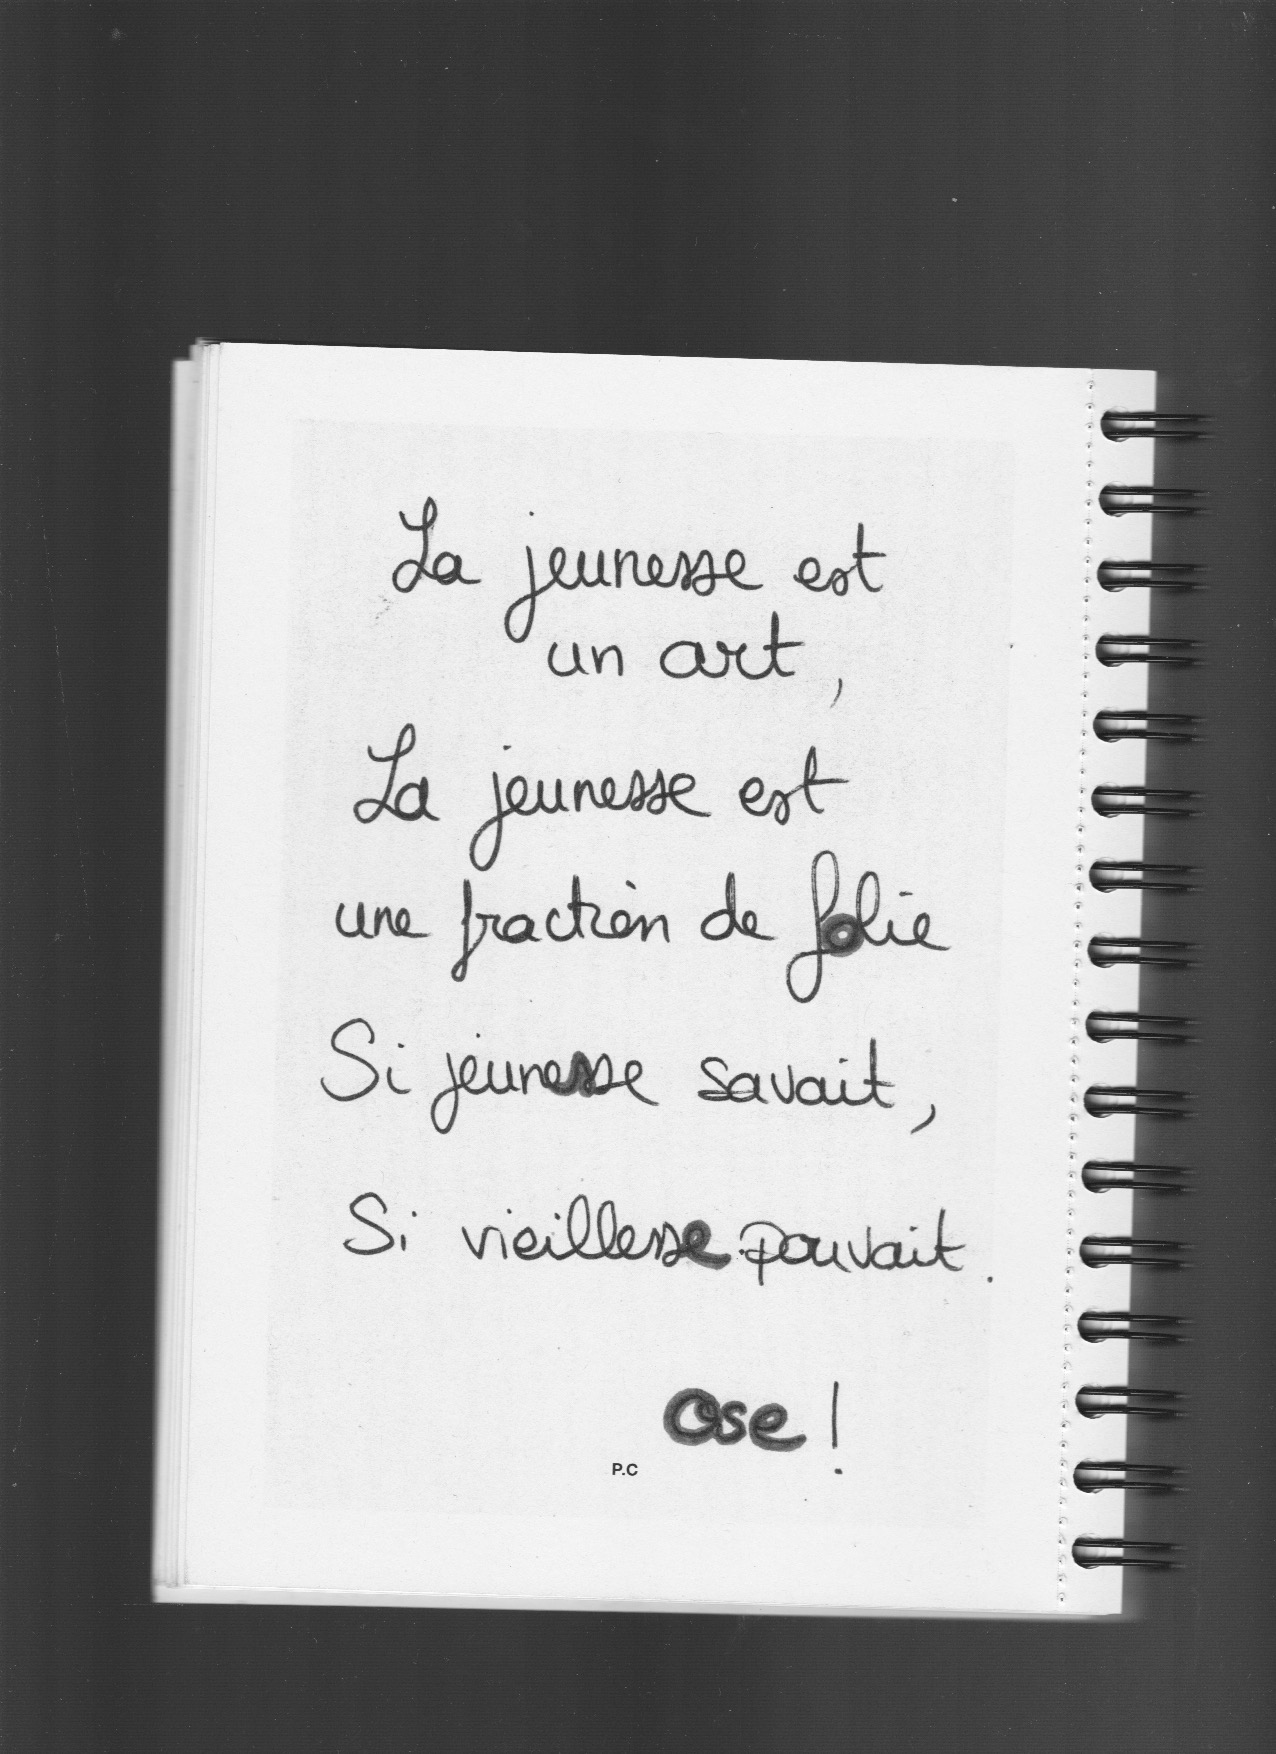 La jeunesse est
un art,
La jeunesse est
une fraction de folie
Si jeunesse savait,
Si vieillesse pouvait.
Ose !
P.C